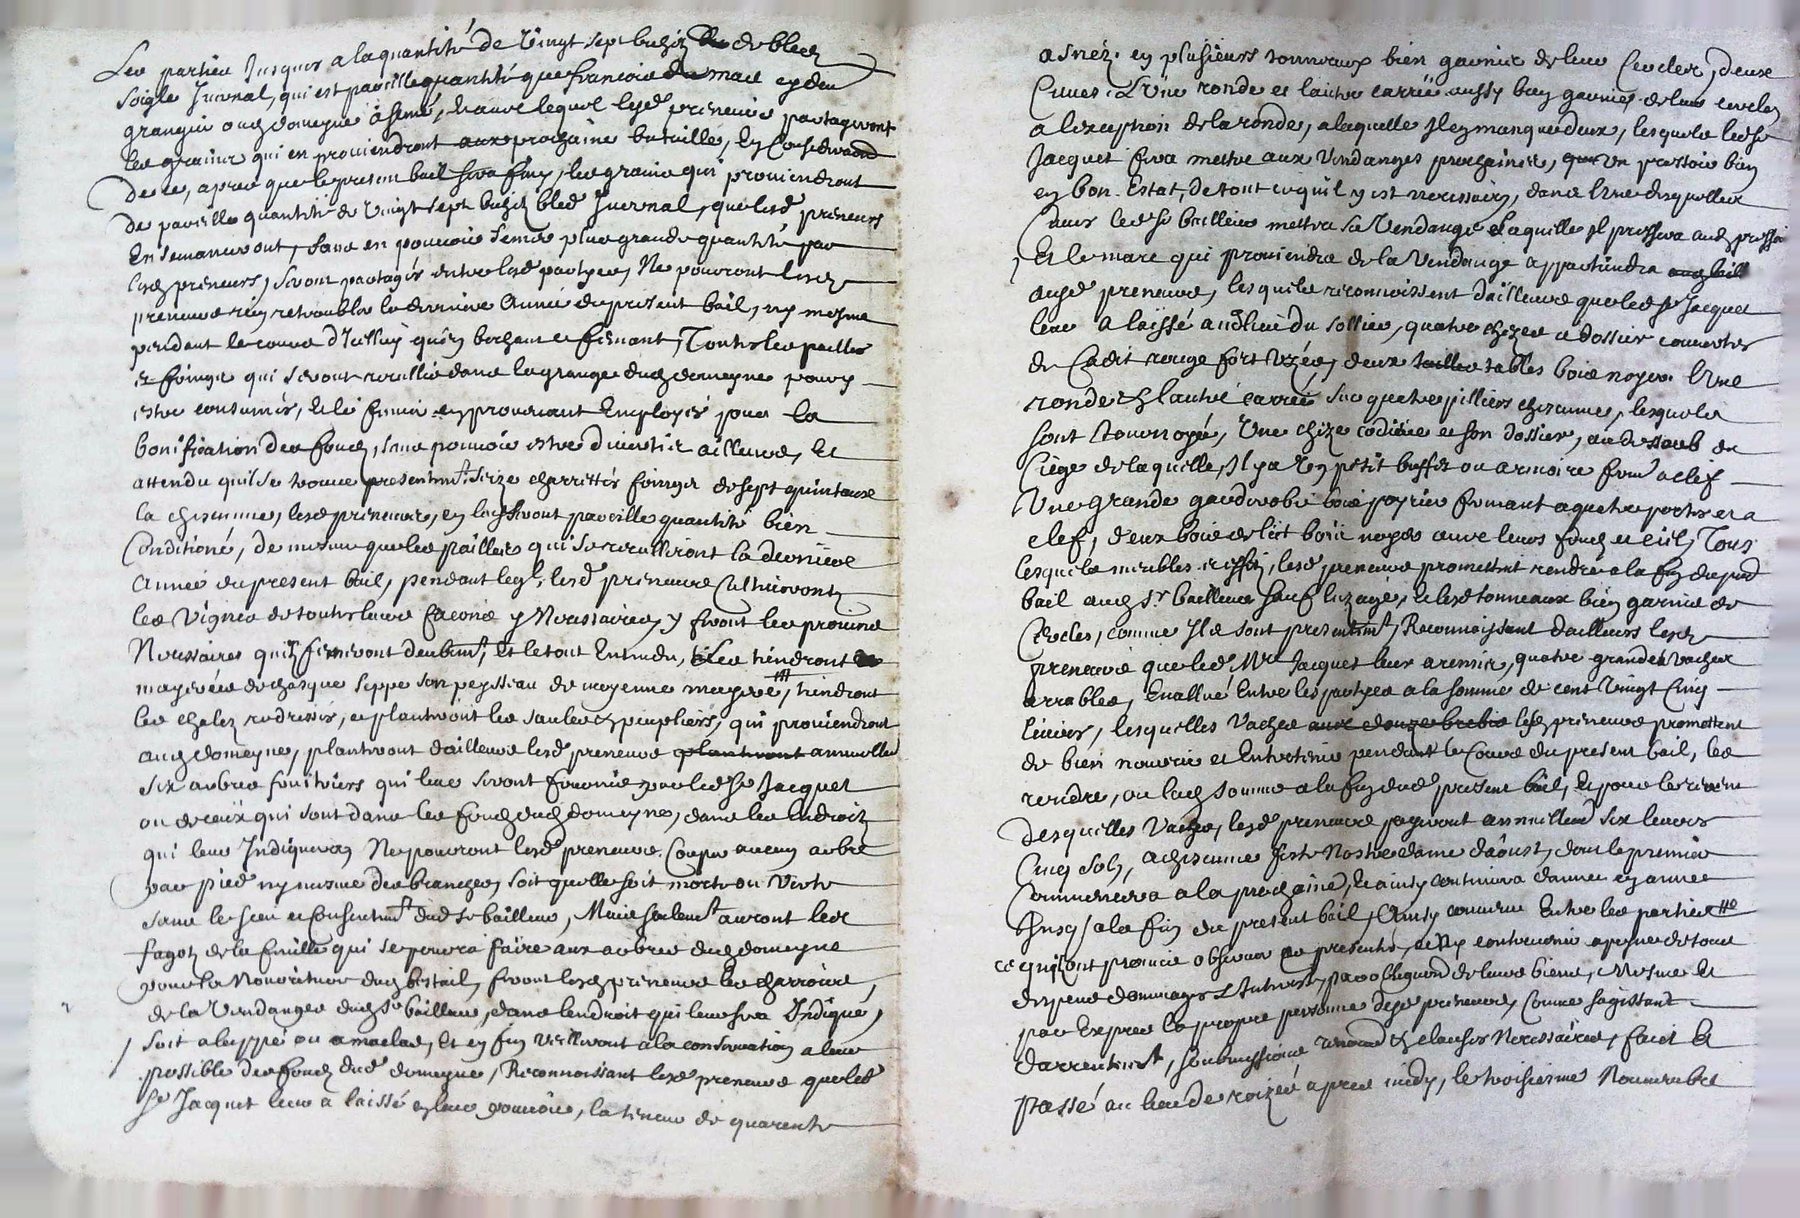 Les parties Jusques a la quantité de Vingt sept bichez de bled
Soigle Jvernal, qui est pareille quantité que francois du mail eyden
grangier auds domeyne à semé, Et avec lequel lesd preneurs partageront
les graines qui en proviendront aux prochaine
de ce, apres que le present bail sera finy, les graine qui proviendront
de pareille quantité de Vingt sept bichez bled Jvernal, que lesd preneurs
Ensemanceront, sans en pouvoir semer plus grande quantité par
lesd preneurs, seront partagés entre lesd partyes, Ne pourront lesd
preneurs rien retroubler la derniere Année du present bail, ny mesme
pendant le cours d'Icelluy qu'en bechant et fumant, Toutes les pailles
et foinger qui seront recullie dans la grange dud domeyne pour y
estre consumés, Et le fumier en provenant Employés pour la
bonification des fondz, sans pouvoir estre divertir ailleurs, Et
attendu qu'il se trouve presentemt seize charrettés foinger de sept quintaux
la chascune, lesd preneurs, en laisseront pareille quantité bien
Conditioné, de mesme que les pailles qui se reculliront la derniere
Année du present bail, pendant leql lesd preneurs Cultiveront
les Vignes de toutes leurs facons y Necessaires, y feront les provins
Necessaires qu'ilz fumeront deubmt, Et le tout Entendu, Les tiendront
mayerées de chasque seppe son peysseau de moyenne mayere, tiendront
les chales redressés, et planteront les saules et peupliers, qui proviendront
aud domeyne, planteront d'ailleurs lesd preneurs planteront annuellt
six arbres fruitiers qui leur seront fournis par led Sr Jacquet
ou de ceux qui sont dans les fondz dud domeyne, dans les endroits
qu'il leur Indiquera, Ne pourront lesd preneurs Couper aucun arbre
par pied ny mesme des branches, soit quelle soit morte ou Verte
sans le sceu et Consentemt dud Sr bailleur, Mais seulemt auront les
fagotz de la feuille qui se pourra faire aux arbres dud domeyne
pour la Nourriture dud bestail, feront lesd preneurs les charroirs
de la Vendange dud Sr bailleur, dans lendroit qui leur sera Indiqué,
soit a leppé ou a maclas, Et en fin Veilleront a la conservation a leur
possible des fondz dud domeyne, Reconnoissant lesd preneurs que led
Sr Jacquet leur a laissé en leur pouvoir, la tineur de quarente
asnéz. en plusieurs tonneaux bien garnir de leur Cercles, deux
Cuves. L'Une ronde et lautre carrée aussy bien garnies de leur cercles
a lexception de la ronde, a laquelle Il en manque deux, lesquels led Sr
Jacquet fera mettre aux Vendanges prochaines, Un pressoir bien
en bon Estat, de tout ce qu'il y est necessaire, dans l'Une desquelles
Cuves led Sr bailleur mettra sa Vendange Laquelle Il pressera aud pressoir
Et le marc qui proviendra de la Vendange appartiendra aud bail
ausd preneurs, lesquels reconnoissent d'ailleurs que led Sr Jacquet
leur a laissé au lieu du sollier, quatre chezes a dossier couvertes
de Cadit rouge fort Uzées, deux tailles tables bois noyer. L'Une
ronde et lautre carrée, sur quatre pilliers chascune, lesquels
sont tournoyés, Une chize codiere et son dossier, au dessoub du
siége de laquelle, Il y a Un petit buffet ou armoire fermt a clef
Une grande garderobe bois poyrier fermant a quatre portes et a
clef, deux bois de lict bois noyer avec leurs fondz et ciel, Tous
lesquels meubles et effets, lesd preneurs promettent rendre a la fin du prnt
bail aud Sr bailleur sauf luzage, Et lesd tonneaux bien garnis de
Cercles, comme Ils sont presentemt, Reconnoissant d'ailleurs lesd
preneurs que led Mre Jacquet leur a remis, quatre grandes Vaches
arrables, Evallué Entre les partyes a la somme de cent Vingt Cinq
livres, lesquelles Vaches aux douze brebis lesd preneurs promettent
de bien nourrir et Entretenir pendant le Cours du present bail, les
rendre, ou lad somme a la fin dud present bail, Et pour le revenu
desquelles Vaches, lesd preneurs payeront annuellemt six livres
Cinq Sols, a chascune feste Nostre dame d'aoust, dont le premier
Commencera a la prochaine, Et ainsy continuera d'année en année
Jusq a la fin du present bail, Ainsy convenu Entre les parties
ce qu'ilz ont promis observer par presente, et Ny contrevenir a peyne de tous
despens dommages Et Interest, par obligaon de leurs biens, Mesme Et
par Expres la propre personne desd preneurs, Comme sagissant
darrentemt, soubmissions renonon et clauses Necessaires, faict Et
passé au lieu de roizey apres midy, le troisiesme Novembre